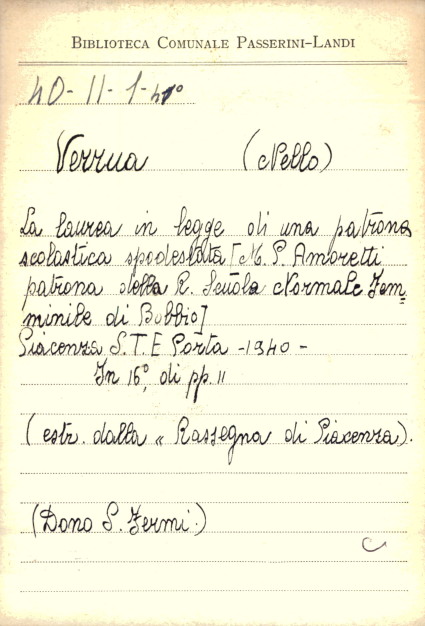 BIBLIOTECA COMUNALE PASSERINI-LANDI
40-11-1-41°
Verrua (Nello)
La laurea in legge di una patrona
scolastica spodestata [M. P. Amoretti
patrona della R. Scuola Normale Fem=
minile di Bobbio]
Piacenza S.T.E Porta -1940-
In 16°, di pp. 11
(estr. dalla « Rassegna di Piacenza).
(Dono S. Fermi)
C